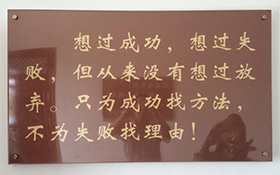 想过成功，想过失
败，但从来没有想过放
弃。只为成功找方法，
不为失败找理由！